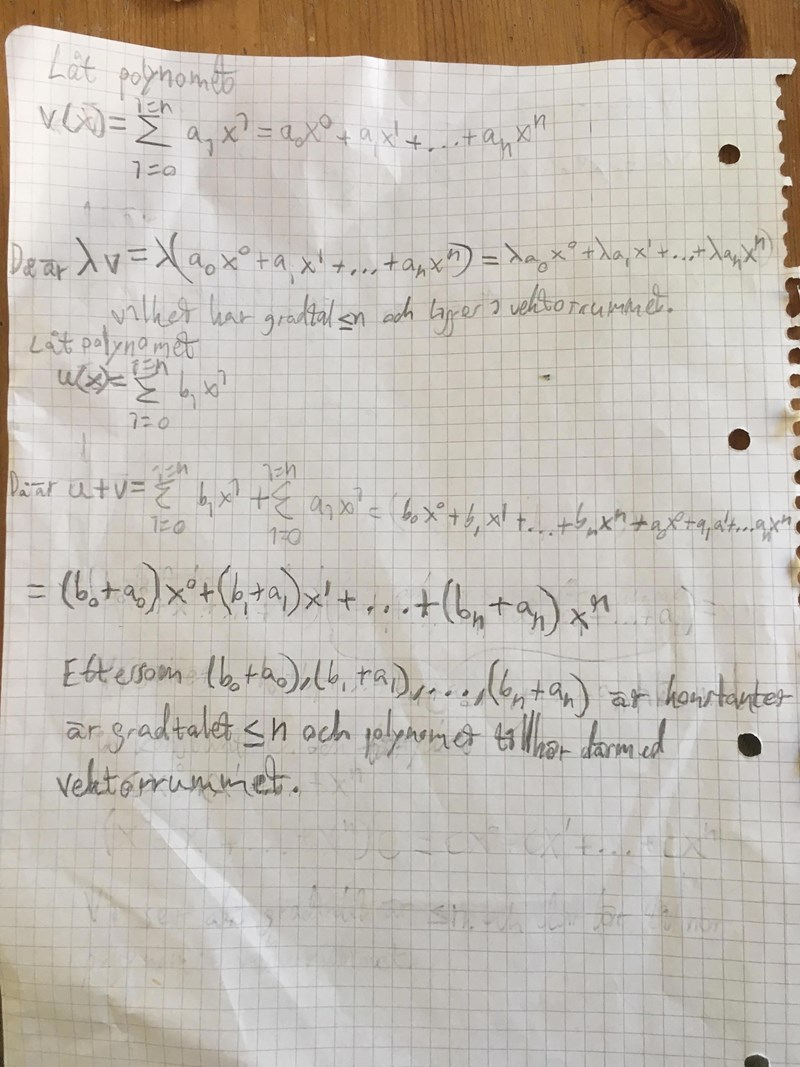 Låt polynomet
v(x) = ∑_{i=0}^{i=n} a_i x^i = a_0x^0 + a_1x^1 + ... + a_nx^n
Då är λv = λ(a_0x^0 + a_1x^1 + ... + a_nx^n) = λa_0x^0 + λa_1x^1 + ... + λa_nx^n)
vilket har gradtal ≤ n och ligger i vektorrummet.
Låt polynomet
u(x) = ∑_{i=0}^{i=n} b_i x^i
Då är u+v = ∑_{i=0}^{i=n} b_i x^i + ∑_{i=0}^{i=n} a_i x^i = (b_0x^0 + b_1x^1 + ... + b_nx^n + a_0x^0 + a_1x^1 + ... a_nx^n
= (b_0+a_0)x^0 + (b_1+a_1)x^1 + .... + (b_n+a_n)x^n
Eftersom (b_0+a_0), (b_1+a_1), ...., (b_n+a_n) är konstanter
är gradtalet ≤ n och polynomet tillhör därmed
vektorrummet.